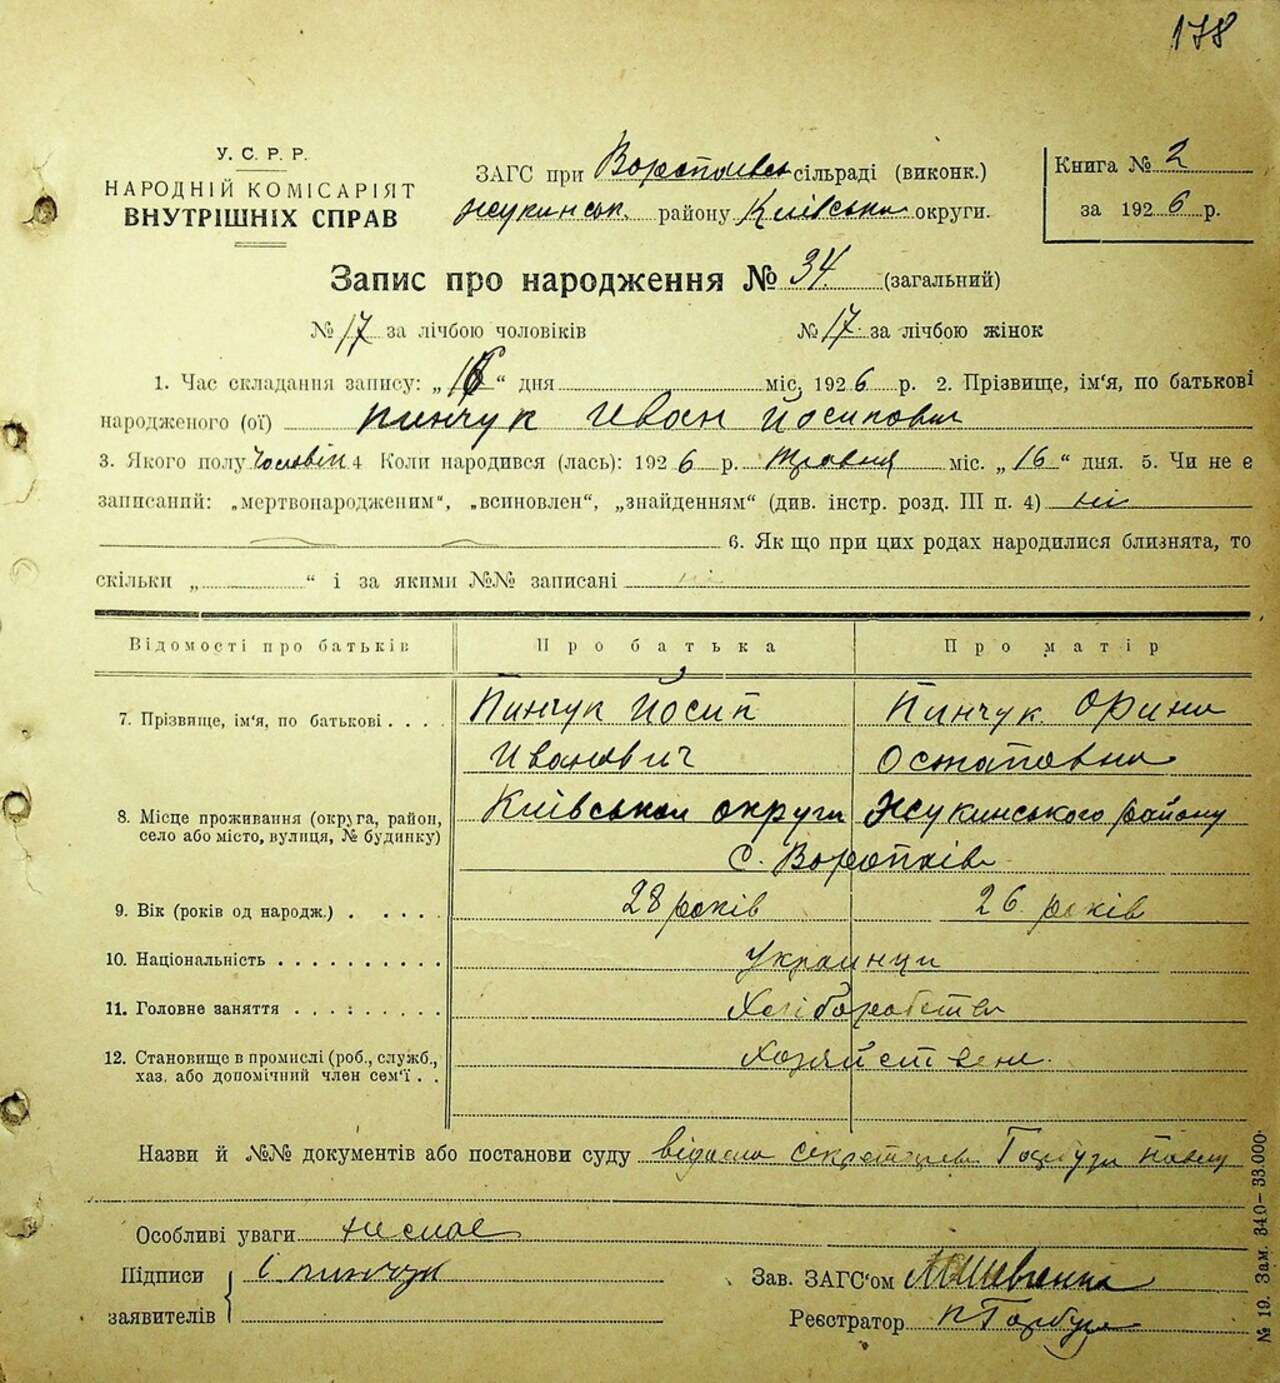 178
У. С. Р. Р.
НАРОДНІЙ КОМІСАРІЯТ
ВНУТРІШНІХ СПРАВ
ЗАГС при сільраді (виконк.)
Жукинськ. району Київська округи.
Книга № 2
за 1926 р.
Запис про народження № 34. (загальний)
№ 17 за лічбою чоловіків № 17 за лічбою жінок
1. Час складання запису: „16“ дня міс. 1926 р. 2. Прізвище, ім'я, по батькові
народженого (ої) Пинчук Иван Йосипович
3. Якого полу 4 Коли народився (лась): 1926 р. Травня міс. „16“ дня. 5. Чи не є
записаний: „мертвонародженим“, „всиновлен“, „знайденням“ (див. інстр. розд. III п. 4) ні
6. Як що при цих родах народилися близнята, то
скільки „ “ і за якими №№ записані ні
Відомості про батьків Про батька Про матір
7. Прізвище, ім'я, по батькові . . . . Пинчук Йосип Пинчук Орина
Иванович Остаповна
8. Місце проживання (округа, район, Київської округи Жукинського району
село або місто, вулиця, № будинку)
с. Воропаїв
9. Вік (років од народж.) . . . . . 28 років 26 років
10. Національність . . . . . . . . . . Украинци
11. Головне заняття . . . . . . . . . Хліборобство
12. Становище в промислі (роб., служб.,
хаз. або допомічний член сем'ї . .
Назви й №№ документів або постанови суду
Особливі уваги немае
Підписи Зав. ЗАГС'ом МШевченка
заявителів Реєстратор П Гарбуза
№ 19. Зам. 340–33.000.